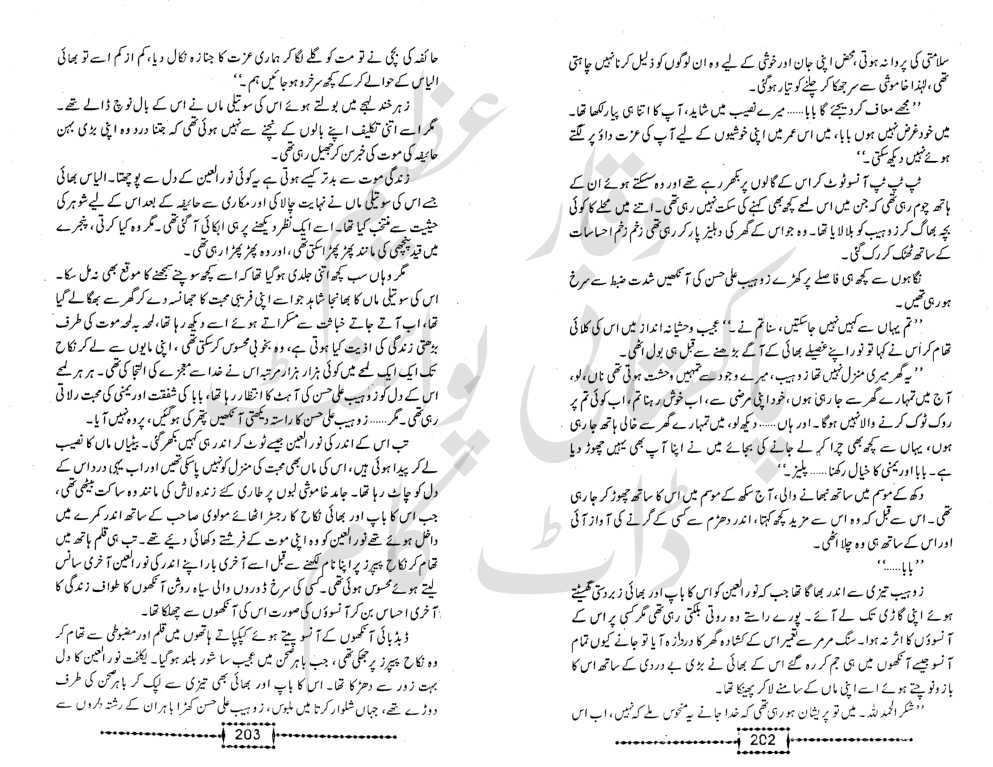 سلامتی کی پروا نہ ہوتی، محض اپنی جان اور خوشی کے لیے وہ ان لوگوں کو ذلیل کرنا نہیں چاہتی
تھی، لہٰذا خاموشی سے سر جھکا کر چلنے کو تیار ہو گئی۔
’’مجھے معاف کر دیجئے گا بابا…… میرے نصیب میں شاید، آپ کا اتنا ہی پیار لکھا تھا۔
میں خود غرض نہیں ہوں بابا، میں اس عمر میں اپنی خوشیوں کے لیے آپ کی عزت داؤ پر لگتے
ہوئے نہیں دیکھ سکتی۔‘‘
ٹپ ٹپ ٹپ آنسو ٹوٹ کر اس کے گالوں پر بکھر رہے تھے اور وہ سسکتے ہوئے ان کے
ہاتھ چوم رہی تھی کہ جن میں اس لمحے کچھ بھی کہنے کی سکت نہیں رہی تھی۔ اتنے میں محلے کا کوئی
بچہ بھاگ کر زوہیب کو بلا لایا تھا۔ وہ جو اس کے گھر کی دہلیز پار کر رہی تھی زخم زخم احساسات
کے ساتھ ٹھٹک کر رک گئی۔
نگاہوں سے کچھ ہی فاصلے پر کھڑے زوہیب علی حسن کی آنکھیں شدت ضبط سے سرخ
ہو رہی تھیں۔
’’تم یہاں سے کہیں نہیں جا سکتیں، سنا تم نے۔‘‘ عجیب وحشیانہ انداز میں اس کی کلائی
تھام کر اس نے کہا تو نور اپنے غصیلے بھائی کے آگے بڑھنے سے قبل ہی بول اٹھی۔
’’یہ گھر میری منزل نہیں تھا زوہیب، میرے وجود سے تمہیں وحشت ہوتی تھی ناں، لو،
آج میں تمہارے گھر سے جا رہی ہوں، خود اپنی مرضی سے، اب خوش رہنا تم، اب کوئی تم پر
روک ٹوک کرنے والا نہیں ہوگا۔ اور ہاں…… دیکھ لو، میں تمہارے گھر سے خالی ہاتھ جا رہی
ہوں، یہاں سے کچھ بھی چرا کر لے جانے کی بجائے میں نے اپنا آپ بھی یہیں چھوڑ دیا
ہے۔ بابا اور یمنی کا خیال رکھنا…… پلیز۔‘‘
دکھ کے موسم میں ساتھ نبھانے والی، آج سکھ کے موسم میں اس کا ساتھ چھوڑ کر جا رہی
تھی۔ اس سے قبل کہ وہ اس سے مزید کچھ کہتا، اندر دھڑم سے کسی کے گرنے کی آواز آئی
اور اس کے ساتھ ہی وہ چلا اٹھی۔
’’بابا……‘‘
زوہیب تیزی سے اندر بھاگا تھا جب کہ نور العین کو اس کا باپ اور بھائی زبردستی گھسیٹتے
ہوئے اپنی گاڑی تک لے آئے۔ پورے راستے وہ روتی بلکتی رہی تھی مگر کسی پر اس کے
آنسوؤں کا اثر نہ ہوا۔ سنگ مرمر سے تعمیر اس کے کشادہ گھر کا دروازہ آیا تو جانے کیوں تمام
آنسو جیسے آنکھوں میں ہی جم کر رہ گئے اس کے بھائی نے بڑی بے دردی کے ساتھ اس کا
بازو نوچتے ہوئے اسے اپنی ماں کے سامنے لا کر پھینکا تھا۔
’’شکر الحمد للہ۔ میں تو پریشان ہو رہی تھی کہ خدا جانے یہ منحوس ملے کہ نہیں، اب اس
202
حائفہ کی بچی نے تو مت کو گلے لگا کر ہماری عزت کا جنازہ نکال دیا، کم از کم اسے تو بھائی
الیاس کے حوالے کر کے کچھ سرخرو ہو جائیں ہم۔‘‘
زہر خند لہجے میں بولتے ہوئے اس کی سوتیلی ماں نے اس کے بال نوچ ڈالے تھے۔
مگر اسے اتنی تکلیف اپنے بالوں کے نچنے سے نہیں ہوئی تھی کہ جتنا درد وہ اپنی بڑی بہن
حائیفہ کی موت کی خبر سن کر جھیل رہی تھی۔
زندگی موت سے بدتر کیسے ہوتی ہے یہ کوئی نور العین کے دل سے پوچھتا۔ الیاس بھائی
جسے اس کی سوتیلی ماں نے نہایت چالاکی اور مکاری سے حائیفہ کے بعد اس کے لیے شوہر کی
حیثیت سے منتخب کیا تھا۔ اسے ایک نظر دیکھنے پر ہی ابکائی آ گئی تھی۔ مگر وہ کیا کرتی، پنجرے
میں قید پنچھی کی مانند پھڑپھڑا سکتی تھی، اور وہ پھڑپھڑا رہی تھی۔
مگر وہاں سب کچھ اتنی جلدی ہو گیا تھا کہ اسے کچھ سوچنے سمجھنے کا موقع بھی نہ مل سکا۔
اس کی سوتیلی ماں کا بھانجا شاہد جو اسے اپنی فریبی محبت کا جھانسہ دے کر گھر سے بھگا لے گیا
تھا، اب آتے جاتے خباثت سے مسکراتے ہوئے اسے دیکھ رہا تھا، لمحہ بہ لمحہ موت کی طرف
بڑھتی زندگی کی اذیت کیا ہوتی ہے، وہ بخوبی محسوس کر سکتی تھی، اپنی مایوں سے لے کر نکاح
تک ایک ایک لمحے میں کوئی ہزار ہزار مرتبہ اس نے خدا سے معجزے کی التجا کی تھی۔ ہر ہر لمحے
اس کے دل کو زوہیب علی حسن کی آہٹ کا انتظار رہا تھا، بابا کی شفقت اور یمنی کی محبت رلاتی
رہی تھی۔ مگر…… زوہیب علی حسن کا راستہ دیکھتی آنکھیں پتھر کی ہو گئیں، پر وہ نہیں آیا۔
تب اس کے اندر کی نور العین جیسے ٹوٹ کر اندر ہی کہیں بکھر گئی۔ بیٹیاں ماں کا نصیب
لے کر پیدا ہوئی ہیں، اس کی ماں بھی محبت کی منزل کو نہیں پا سکی تھیں اور اب یہی درد اس کے
دل کو چاٹ رہا تھا۔ جامد خاموشی لبوں پر طاری کئے زندہ لاش کی مانند وہ ساکت بیٹھی تھی،
جب اس کا باپ اور بھائی نکاح کا رجسٹر اٹھائے مولوی صاحب کے ساتھ اندر کمرے میں
داخل ہوئے تھے نور العین کو وہ اپنی موت کے فرشتے دکھائی دیئے تھے۔ تب ہی قلم ہاتھ میں
تھام کر نکاح پیپرز پر اپنا نام لکھنے سے قبل اسے آخری بار اپنے اندر کی نور العین آخری سانس
لیتے ہوئے محسوس ہوئی تھی۔ کسی کی سرخ ڈوروں والی سیاہ روشن آنکھوں کا طواف زندگی کا
آخری احساس بن کر آنسوؤں کی صورت اس کی آنکھوں سے چھلکا تھا۔
ڈبڈبائی آنکھوں کے آنسو پیتے ہوئے کپکپاتے ہاتھوں میں قلم اور مضبوطی سے تھام کر
وہ نکاح پیپرز پر جھکی تھی، جب باہر صحن میں عجیب سا شور بلند ہو گیا۔ یکلخت نور العین کا دل
بہت زور سے دھڑکا تھا۔ اس کا باپ اور بھائی بھی تیزی سے لپک کر باہر صحن کی طرف
دوڑے تھے، جہاں شلوار کرتا میں ملبوس، زوہیب علی حسن کھڑا باہر ان کے رشتہ داروں سے
203